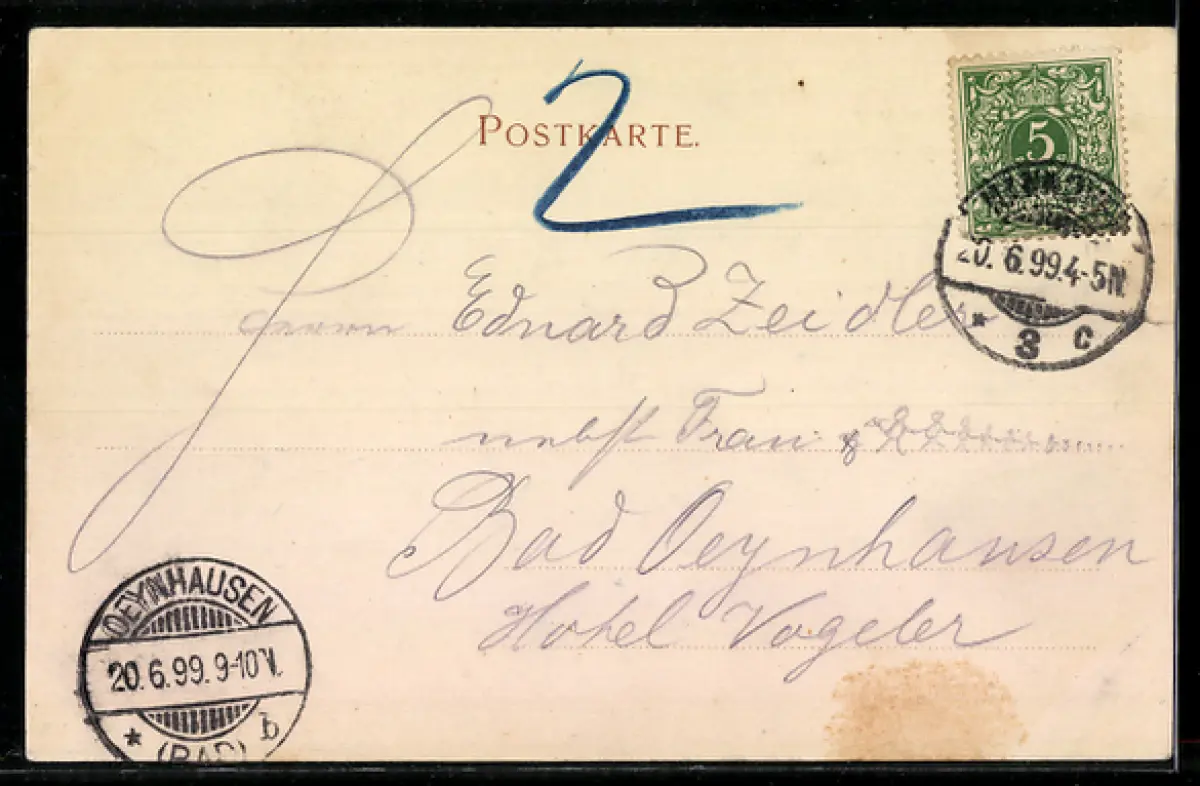 POSTKARTE.
2
5
20. 6. 99. 4-5N.
3 c
Herrn Eduard Zeidler
nebst Frau
Bad Oeynhausen
Hotel Vogeler
OEYNHAUSEN
20. 6. 99. 9-10 V.
b
(BAD)